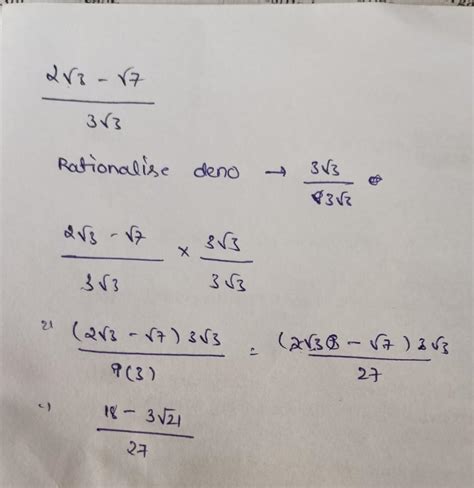 2√3 - √7 / 3√3
Rationalise deno → 3√3 / 3√3
2√3 - √7 / 3√3 × 3√3 / 3√3
(2√3 - √7) 3√3 / 9(3) = (2√3 - √7) 3√3 / 27
18 - 3√21 / 27